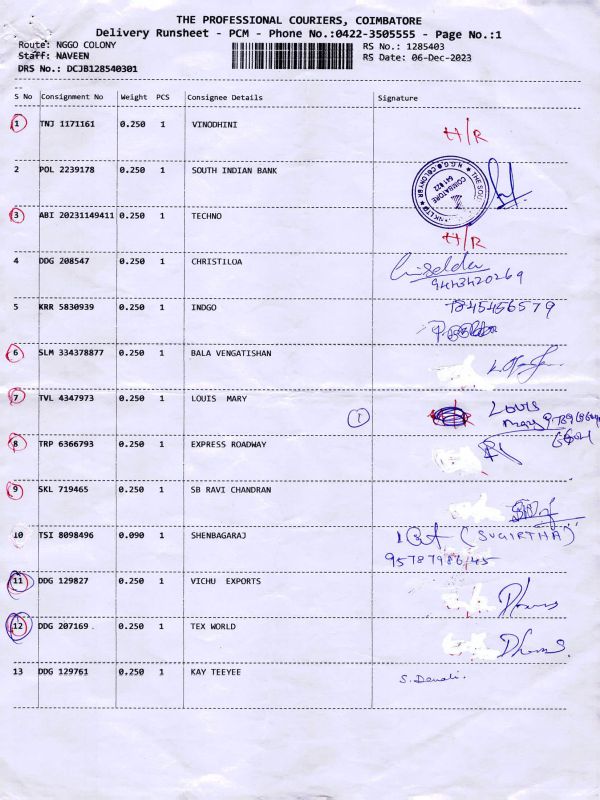 THE PROFESSIONAL COURIERS, COIMBATORE
Delivery Runsheet - PCM - Phone No.:0422-3505555 - Page No.:1
Route: NGGO COLONY
RS No.: 1285403
Staff: NAVEEN
RS Date: 06-Dec-2023
DRS No.: DCJB128540301
S No Consignment No Weight PCS Consignee Details Signature
1 TNJ 1171161 0.250 1 VINODHINI H/R
2 POL 2239178 0.250 1 SOUTH INDIAN BANK
COIMBATORE
3 ABI 20231149411 0.250 1 TECHNO H/R
4 DDG 208547 0.250 1 CHRISTILOA
9443420269
5 KRR 5830939 0.250 1 INDGO 7845456579
6 SLM 334378877 0.250 1 BALA VENGATISHAN
7 TVL 4347973 0.250 1 LOUIS MARY 1 Louis
mary
8 TRP 6366793 0.250 1 EXPRESS ROADWAY
9 SKL 719465 0.250 1 SB RAVI CHANDRAN
10 TSI 8098496 0.090 1 SHENBAGARAJ (SUGIRTHA)
9578798645
11 DDG 129827 0.250 1 VICHU EXPORTS
12 DDG 207169 0.250 1 TEX WORLD
13 DDG 129761 0.250 1 KAY TEEYEE